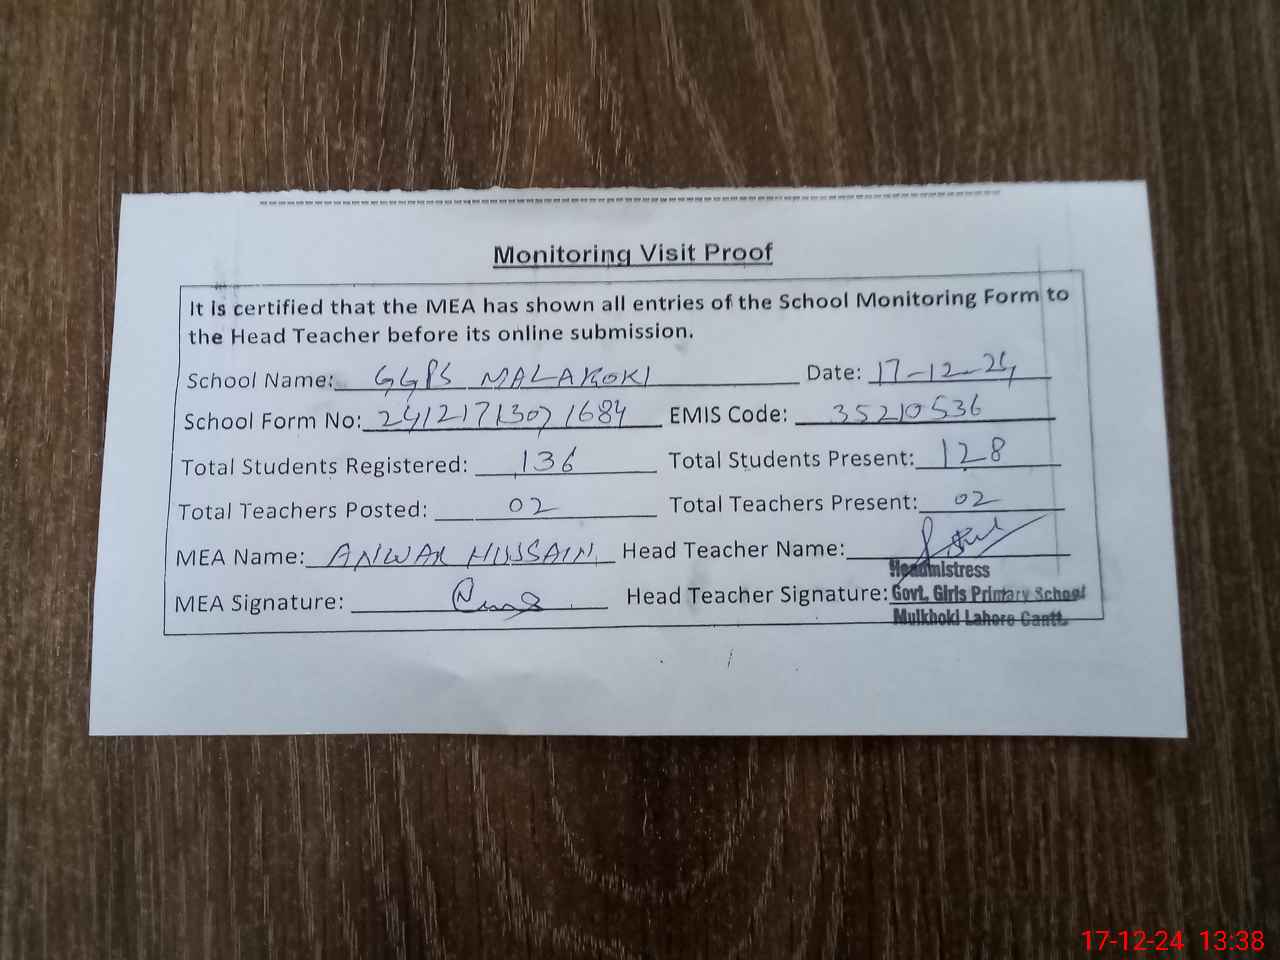 Monitoring Visit Proof
It is certified that the MEA has shown all entries of the School Monitoring Form to
the Head Teacher before its online submission.
School Name: GGPS MALAKOKI Date: 17-12-24
School Form No: 24121713071684 EMIS Code: 35210536
Total Students Registered: 136 Total Students Present: 128
Total Teachers Posted: 02 Total Teachers Present: 02
MEA Name: ANWAR HUSSAIN Head Teacher Name:
Headmistress
MEA Signature: Head Teacher Signature: Govt. Girls Primary School
Mulkhoki Lahore Cantt.
17-12-24 13:38